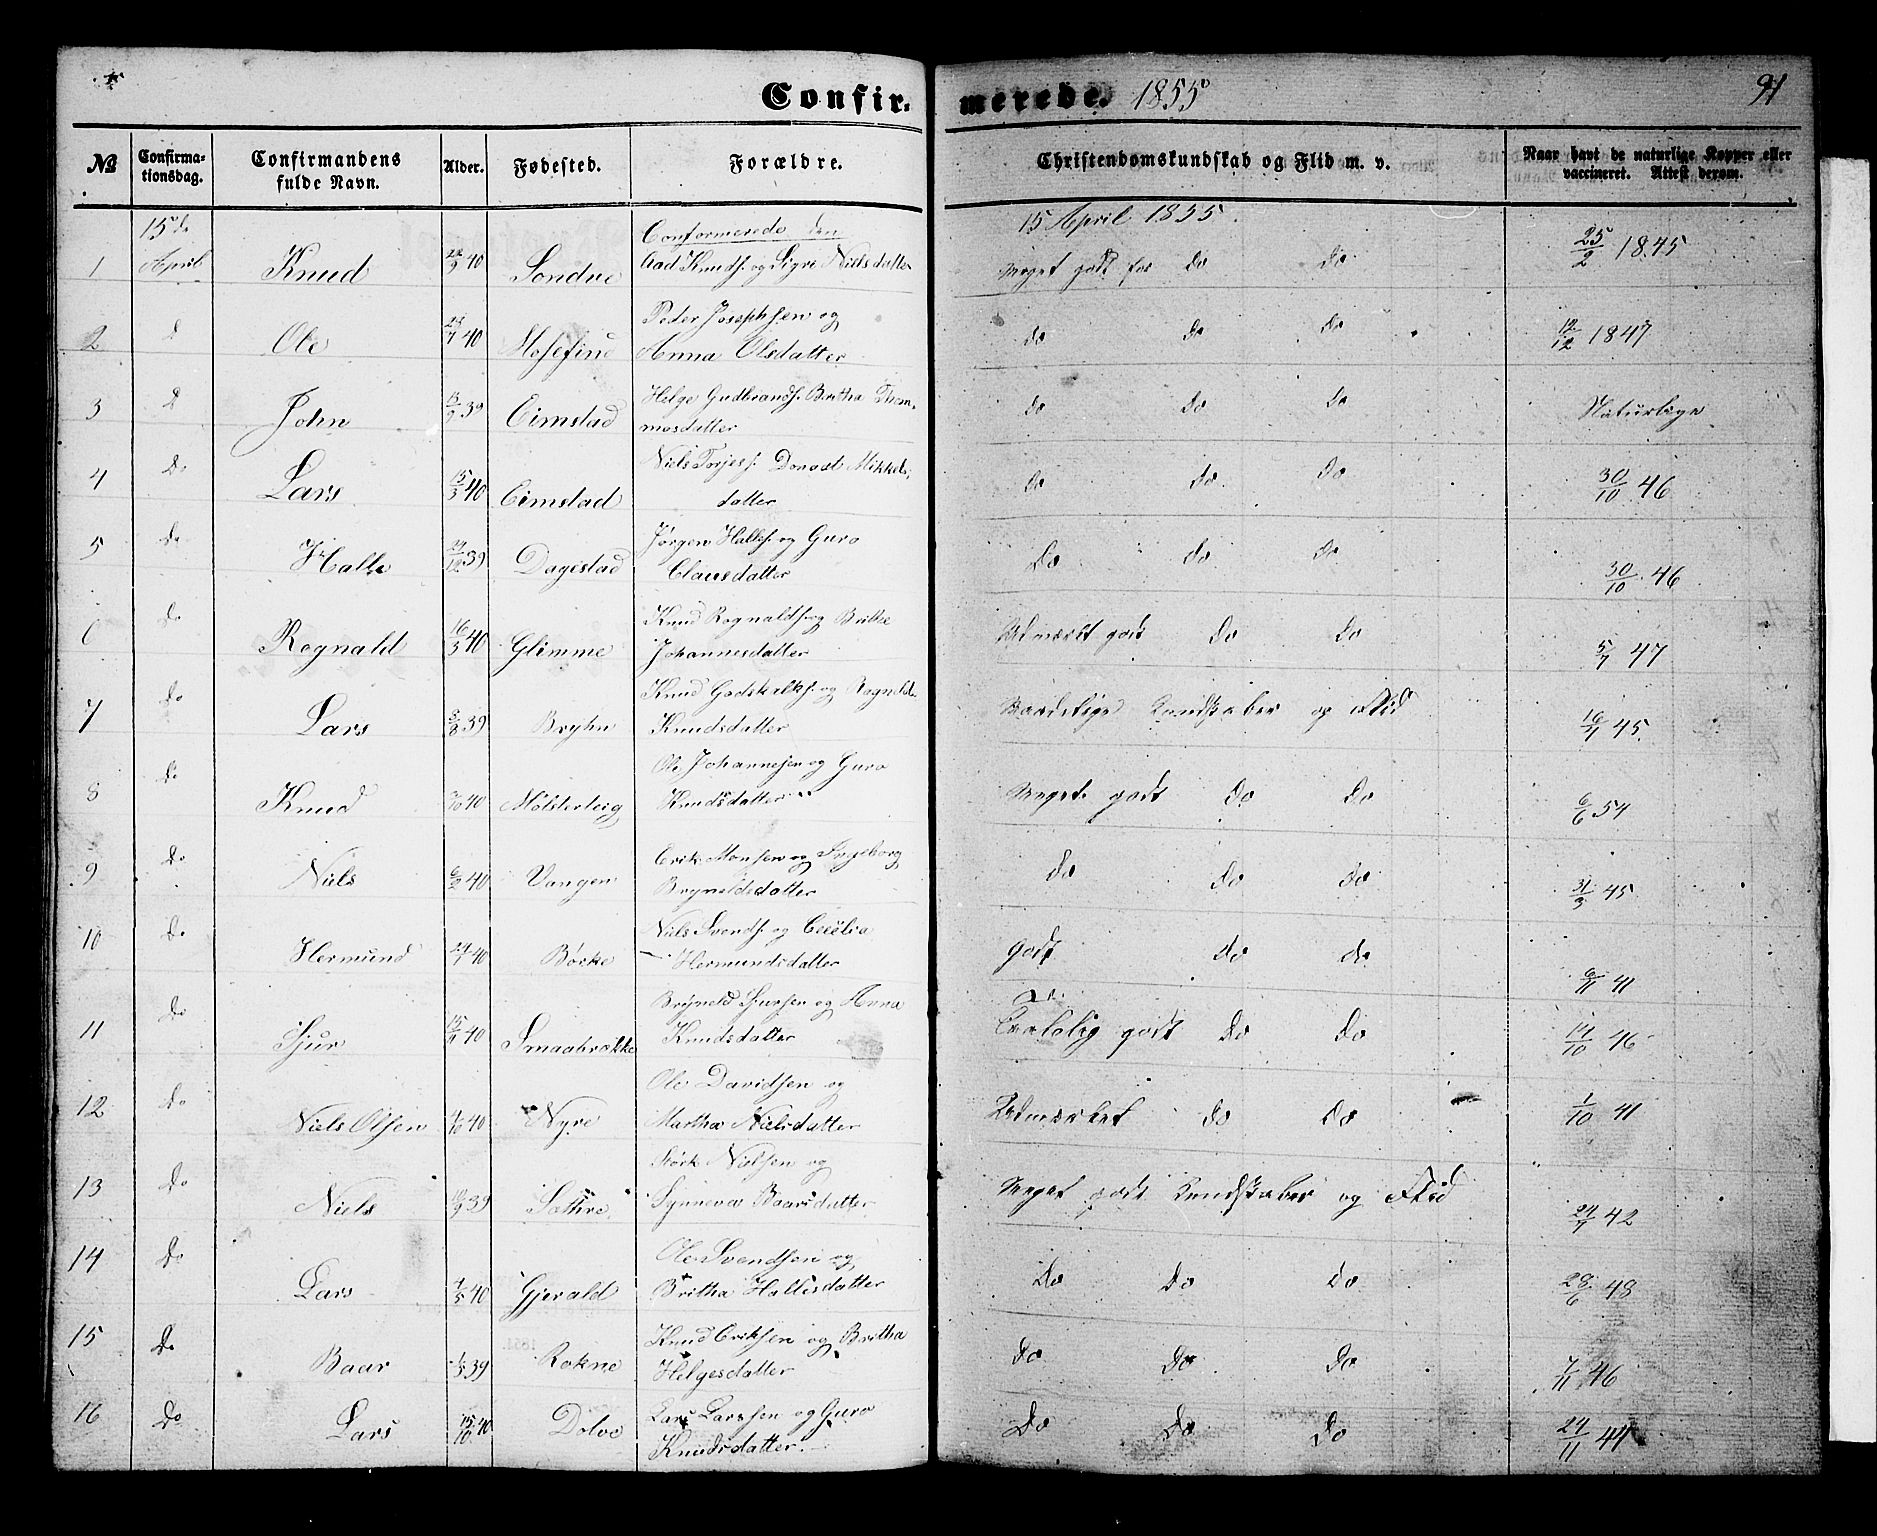 Confirmerede. 1855 91
№ Confirmationsdag. Confirmandens fulde Navn. Alder. Fødested. Forældre. Christendomskundskab og Flid m. v. Naar havt de naturlige Kopper eller vaccineret. Attest derom.
Conformerede den 15 April 1855.
1 15de April Knud 40 Sondve Aad Knuds. og Sigri Nielsdatter Meget godt for Do Do 25/2 1845
2 d Ole 40 Mosefind Peder Josephsen og
Anna Olsdatter do do do 12/12 1847
3 D John 13/9 39 Eimstad Helge Gudbrands. Britha Thom-
masdatter do do do Naturlige
4 Do Lars 15/3 40 Eimstad Niels Torjes. Mikkels-
datter do do do 30/10 46
5 Do Halle 39 Dagestad Jørgen Halles. og Guro
Clausdatter Do do do 30/10 46
6 Do Rognald 16/3 40 Glimme Knud Rognalds. og Brithe
Johannesdatter Udmærket godt Do Do 5/7 47
7 Do Lars 39 Bryhn Knud Godskalks. og Ragnild
Knudsdatter Kundskaber og Flid 45
8 Do Knud 40 Mølsterteig Ole Johannesen og Guro
Knudsdatter Meget godt Do Do 6/6 54
9 Do Niels 6/2 40 Vangen Erik Monsen og Ingeborg
Brynildsdatter do do do 31/3 45
10 Do Hermund 40 Børke Niels Svends. og Cecilia
Hermundsdatter godt do do 6/11 41
11 Do Sjur 40 Smaabrekke Bryneld Sjursen og Anna
Knudsdatter godt Do Do 46
12 Do Niels Olsen 40 Nyre Ole Davidsen og
Martha Nielsdatter Udmærket do do 1/10 41
13 Do Niels 39 Sæthre Størk Nielsen og
Synneva Baarsdatter Meget godt Kundskaber og Flid 42
14 Do Lars 40 Gjerald Ole Svendsen og
Britha Hallisdatter Do Do do 28/6 48
15 Do Baar 39 Rokne Knud Eriksen og Britha
Helgesdatter do Do Do 7/11 46
16 Do Lars 15/10 40 Dolve Lars Larssen og Guro
Knudsdatter Do Do Do 24/11 44